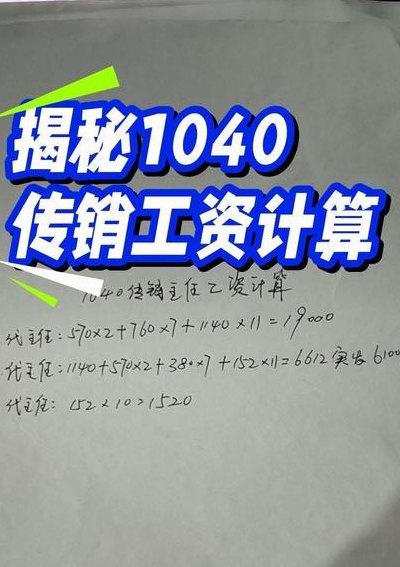 揭秘1040
传销工资计算
1040传销主任工资计算
代主任:570×2+760×7+1140×11=19000
代主任:1140+570×2+380×7+152×11=6612实发6100
代主任:152×10=1520